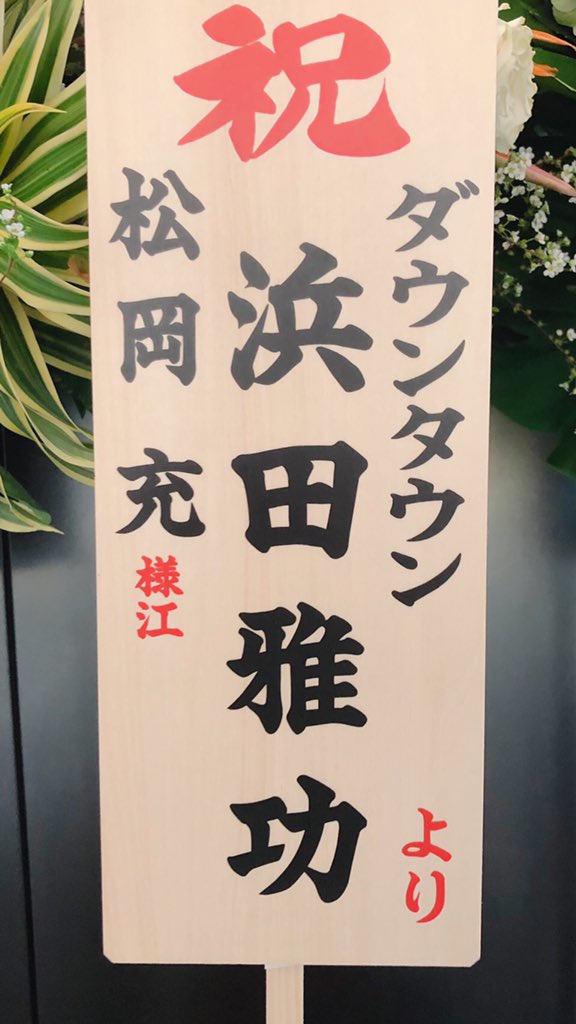 祝
ダウンタウン
浜田雅功
より
松岡充様江